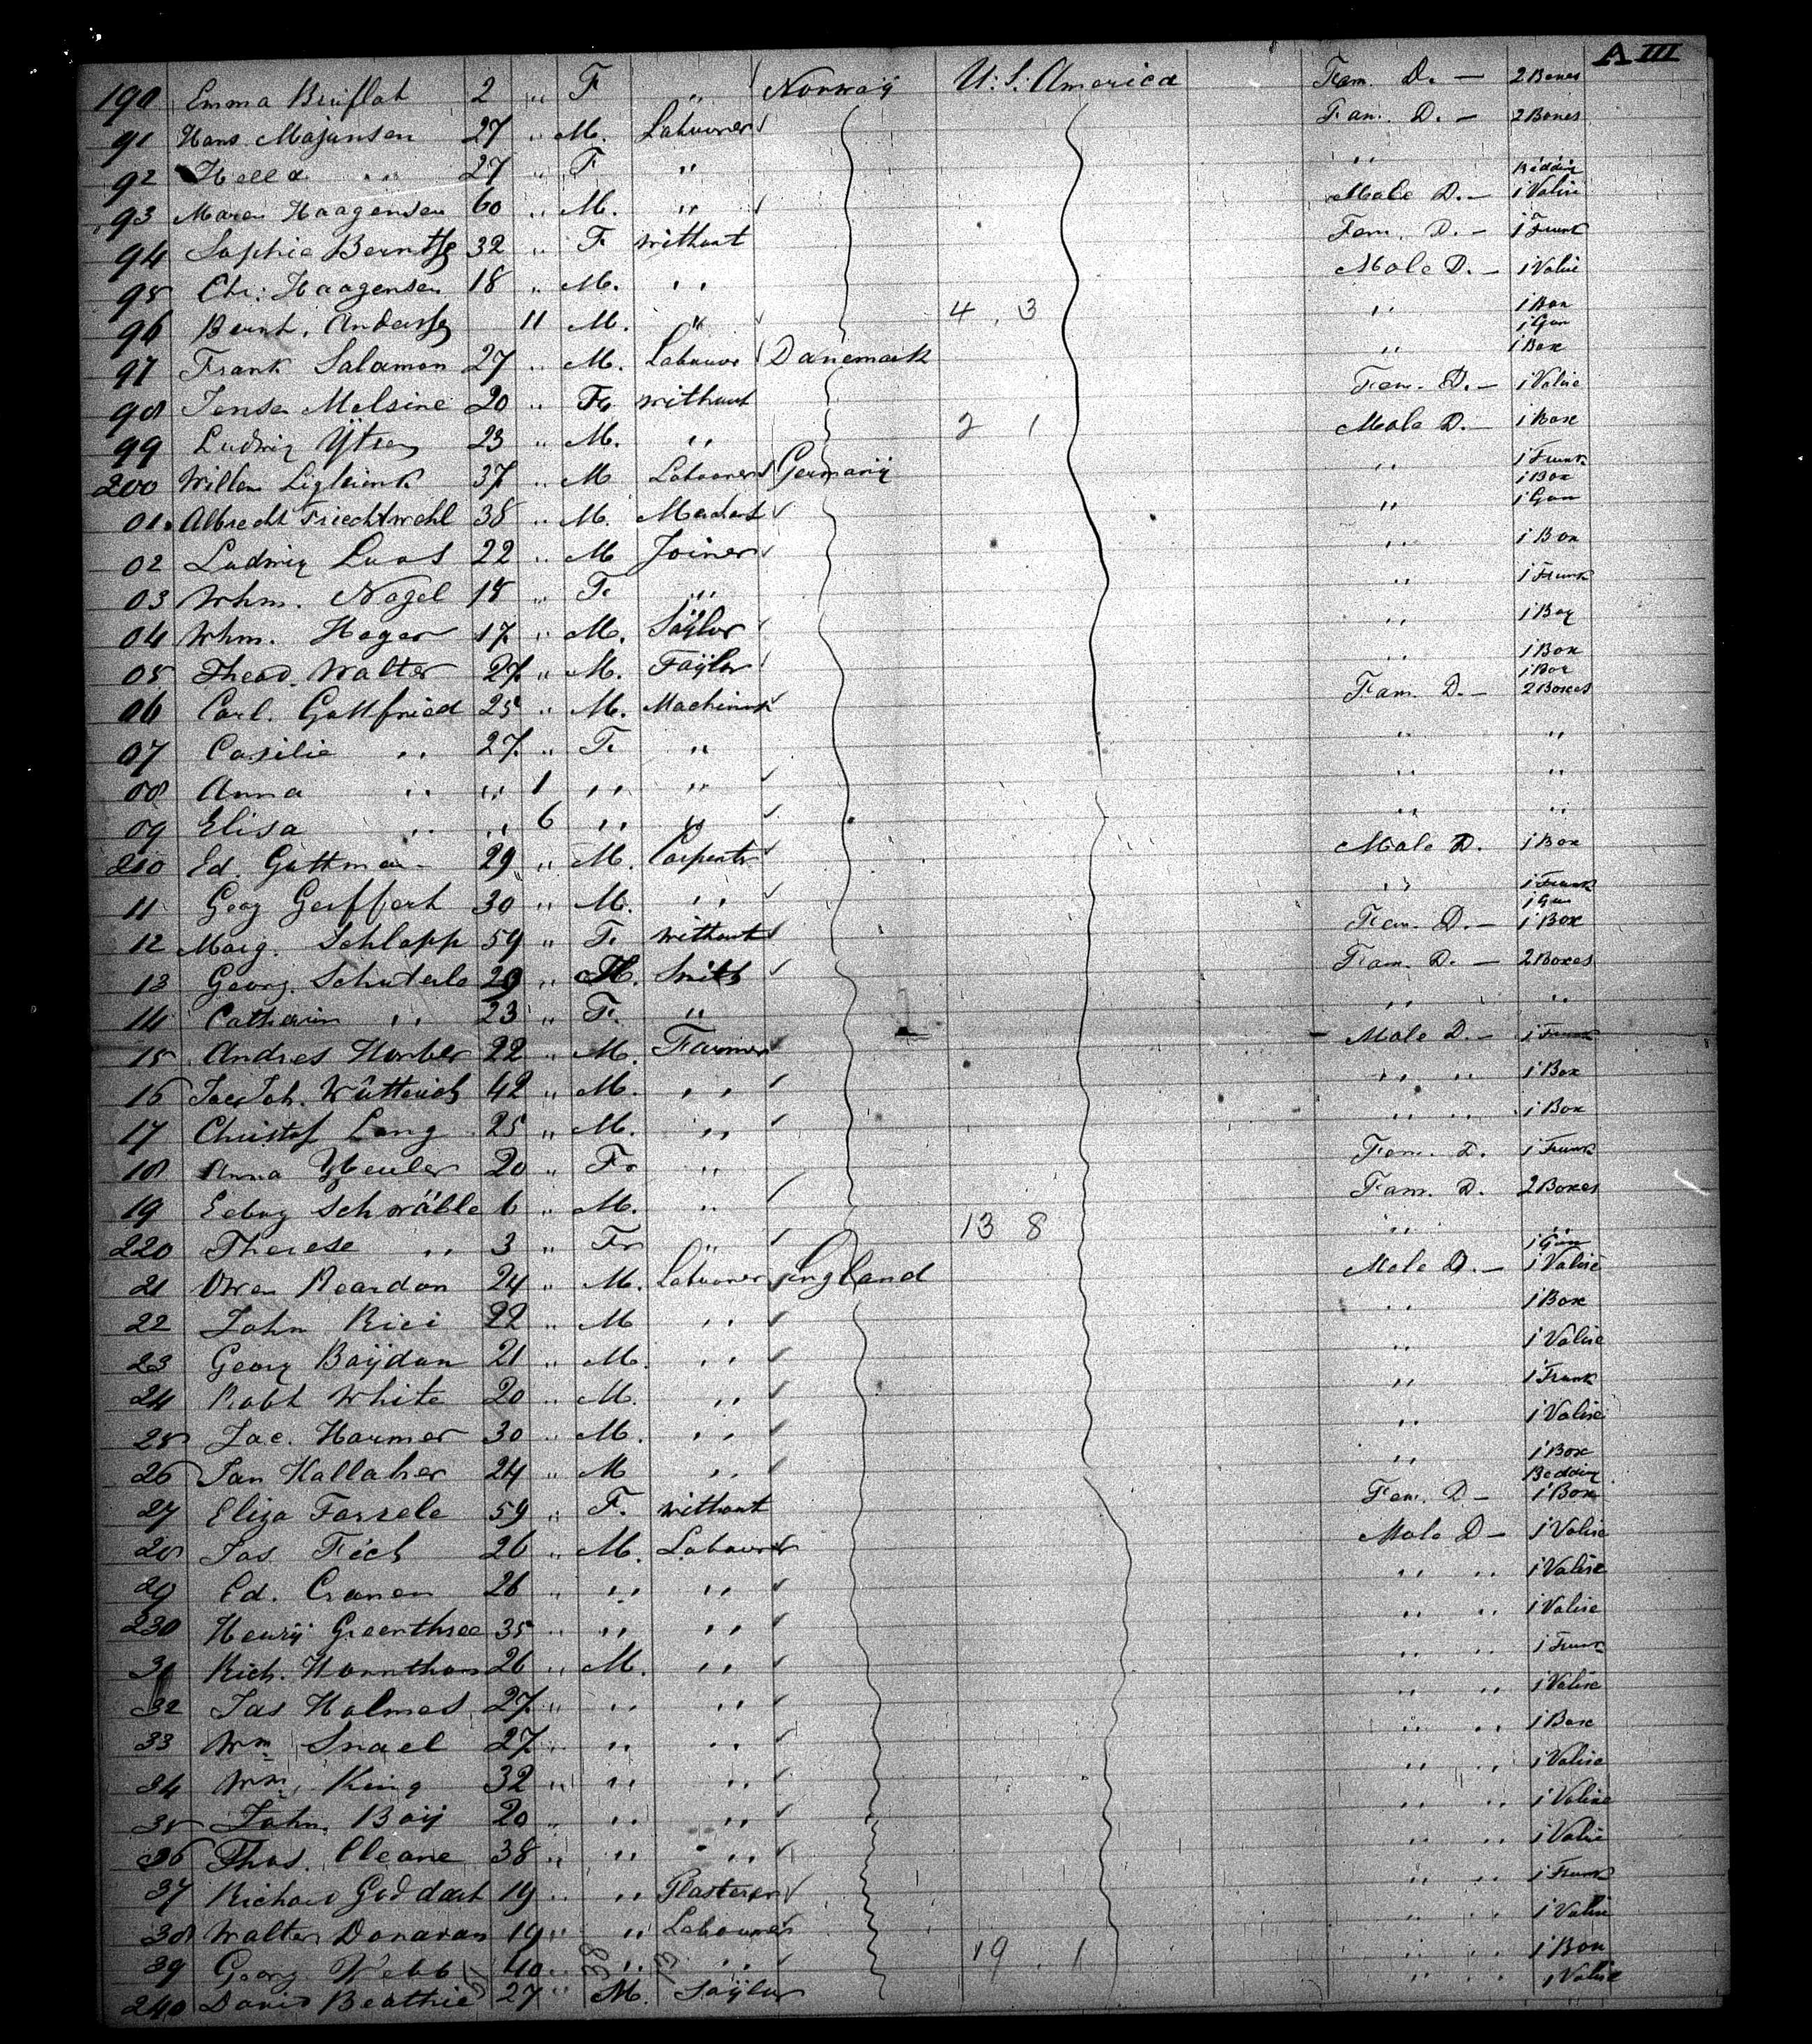 A III
190 Emma Bruflat 2 „ F „ Norway U. S. America Fam. D. — 2 Boxes
91 Hans Majunsen 27 „ M. Labourer Fam. D. — 2 Boxes
92 Hella „ 27 „ F „ „ Bedding
93 Maren Haagensen 60 „ M. „ Male D. — 1 Valise
94 Sophie 32 „ F without Fem. D. — 1 Trunk
95 Chr: Haagensen 18 „ M. „ Male D. — 1 Valise
96 11 M. „ 4 . 3 „ 1 Box 1 Gun
97 Frank Salamon 27 „ M. Labourer Danemark „ 1 Box
98 Jensen Melsine 20 „ F. without Fem. D. — 1 Valise
99 Ludwig 23 „ M. „ 2 1 Male D. — 1 Box
200 Willem 37 „ M Labourer Germany „ 1 Trunk 1 Box
01 Albrecht 38 „ M. „ 1 Gun
02 Ludwig Luos 22 „ M Joiner „ 1 Box
03 Whm. Nagel 18 „ F. „ „ 1 Trunk
04 Whm. Hager 17 „ M. Taÿlor „ 1 Box
05 Theod. Walter 27 „ M. Taÿlor „ 1 Box 1 Box
06 Carl. Gottfried 25 „ M. Machinist Fam. D. — 2 Boxes
07 Casilie „ 27 „ F. „ „ „
08 Anna „ „ 1 „ „ „ „
09 Elisa „ „ 6 „ „ „ „
210 Ed. Guttman 29 „ M. Carpenter Male D. 1 Box
11 Georg Geffert 30 „ M. „ „ 1 Trunk 1 Gun
12 Marg. Schlapp 59 „ F. without Fem. D. — 1 Box
13 Georg. Schuterle 29 „ M. Smith Fam. D. — 2 Boxes
14 Catharin „ 23 „ F. „ „ „
15 Andres Horber 22 „ M. Farmer Male D. — 1 Trunk
16 Jac Joh. Wütterich 42 „ M. „ „ „ 1 Box
17 Christof Lang 25 „ M. „ „ „ 1 Box
18 Anna 20 „ F. „ Fem. D. 1 Trunk
19 Schwäble 6 „ M. „ Fam. D. 2 Boxes
220 Therese „ 3 „ F. „ 13 8 „ „
21 Owen Reardon 24 „ M. Labourer England Male D. — 1 Gun 1 Valise
22 John Rici 22 „ M „ „ 1 Box
23 Georg Boÿdan 21 „ M. „ „ 1 Valise
24 Robt White 20 „ M. „ „ 1 Trunk
25 Jac. Harmer 30 „ M. „ „ 1 Valise
26 Jan Kallaher 24 „ M „ „ 1 Box Bedding
27 Eliza Farrele 59 „ F. without Fem. D — 1 Box
28 Jas Fich 26 „ M. Labourer Male D — 1 Valise
29 Ed. Cranen 26 „ „ „ „ „ 1 Valise
230 Henrÿ Greenthree 35 „ „ „ „ „ 1 Valise
31 Rich. Hornthorn 26 „ M. „ „ 1 Trunk
32 Jas Holmes 27 „ „ „ „ „ 1 Valise
33 Wm Snael 27 „ „ „ „ „ 1 Box
34 Wm King 32 „ „ „ „ „ 1 Valise
35 John Boÿ 20 „ „ „ „ „ 1 Valise
36 Thos. Cleane 38 „ „ „ „ „ 1 Valise
37 Richard Goddart 19 „ „ Plasterer „ „ 1 Trunk
38 Walter Donavan 19 „ „ Labourer „ „ 1 Valise
39 Georg Webb 40 „ „ „ 19 . 1 „ „ 1 Box
240 David Beathie 27 „ M. Taÿlor „ „ 1 Valise